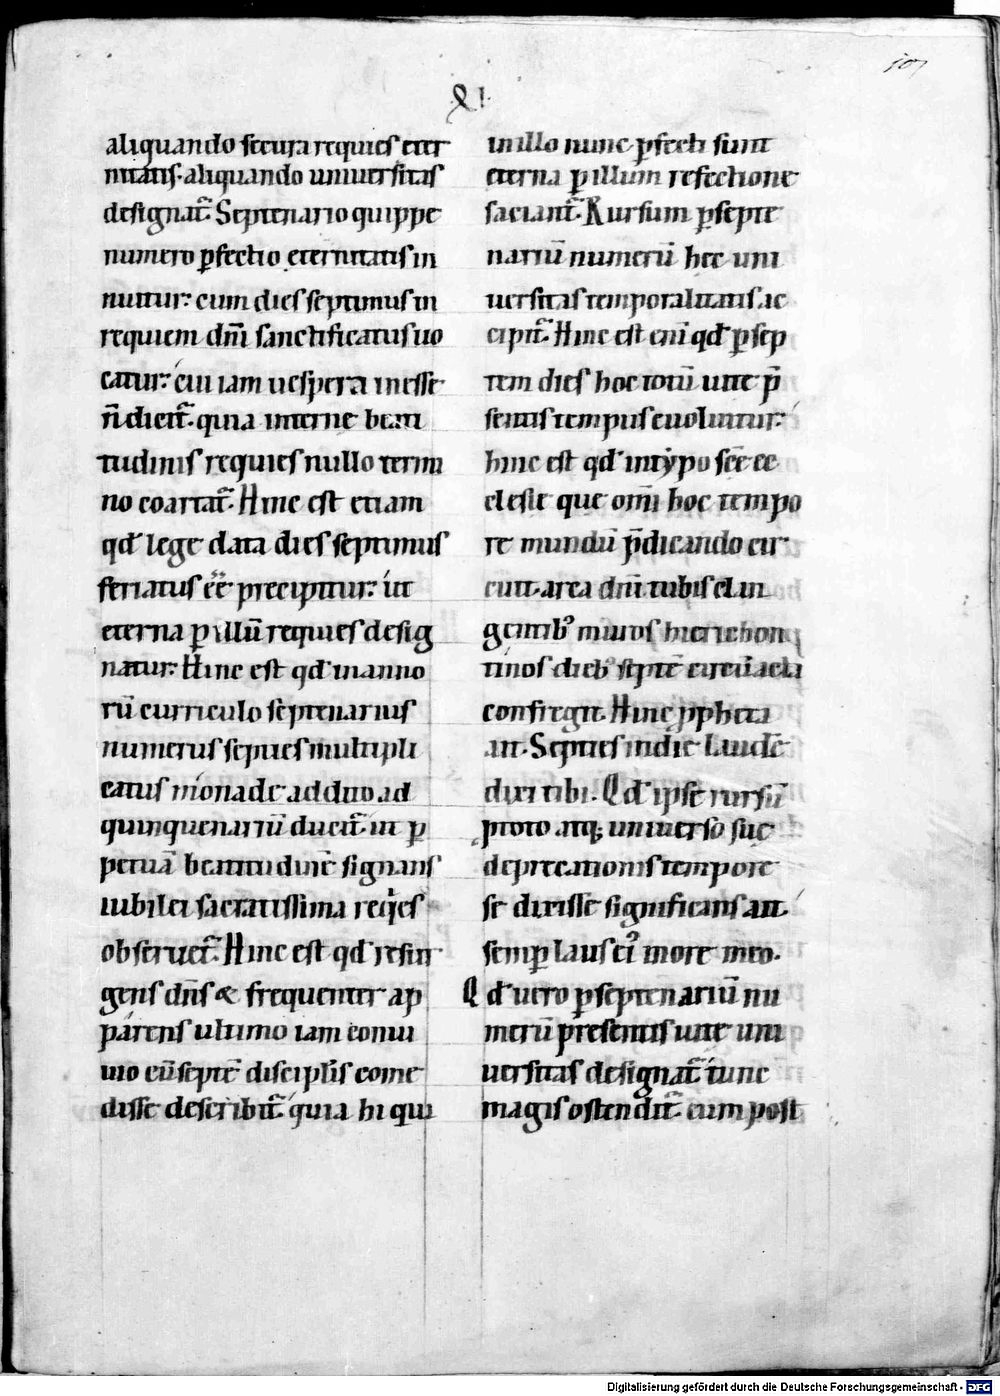 107
XI
aliquando secura requies eter
nitatis. aliquando universitas
designat̄. Septenario quippe
numero ꝑfectio eternitatis in
nuitur: cum dies septimus in
requiem dn̄i sanctificatus uo
catur: cui iam uespera inesse
n̄ dicit̄. quia interne beati
tudinis requies nullo termi
no coartat̄. Hinc est etiam
qd̓ lege data dies septimus
feriatus ēē precipitur: ut
eterna ꝑ illū requies desig
natur: Hinc est qd̓ in anno
rū curriculo septenarius
numerus septies multipli
catus monade addito ad
quinquenariū ducit̄. ut ꝑ
petuā beatitudinē signans
iubilei sacratissima reqͥes
obseruet̄. Hinc est qd̓ resur
gens dn̄s & frequenter ap
parens ultimo iam conui
uio cū septē discipl̓is come
disse describit̄. quia hi qui
in illo nunc ꝑfecti sunt
eterna ꝑ illum refectione
saciant̄. Rursum ꝑ septe
nariū numerū hec uni
uersitas temporalitatis ac
cipit̄. Hinc est eni qd̓ ꝑ sep
tem dies hoc totū uite p̄
sentis tempus euoluitur:
hinc est qd̓ in typo scē ec
clesie que omni hoc tempo
re mundū p̄dicando cir
cuit. arca dn̄i tubis clan
gentibꝰ muros hierichon
tinos diebꝰ septē circūacta
confregit. Hinc ꝓpheta
ait. Septies in die laudē
dixi tibi. Qd̓ ipse rursū
ꝓ toto atqꝫ uniuerso sue
deprecationis tempore
se dixisse significans ait.
semꝑ laus eiꝰ in ore meo.
Qd̓ uero ꝑ septenariū nu
merū presentis uite uni
uersitas designat̄. tunc
magis ostendit̄. cum post
Digitalisierung gefördert durch die Deutsche Forschungsgemeinschaft - DFG